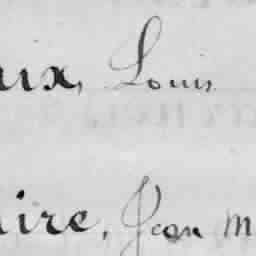 aix, Louis
aire, Jean M